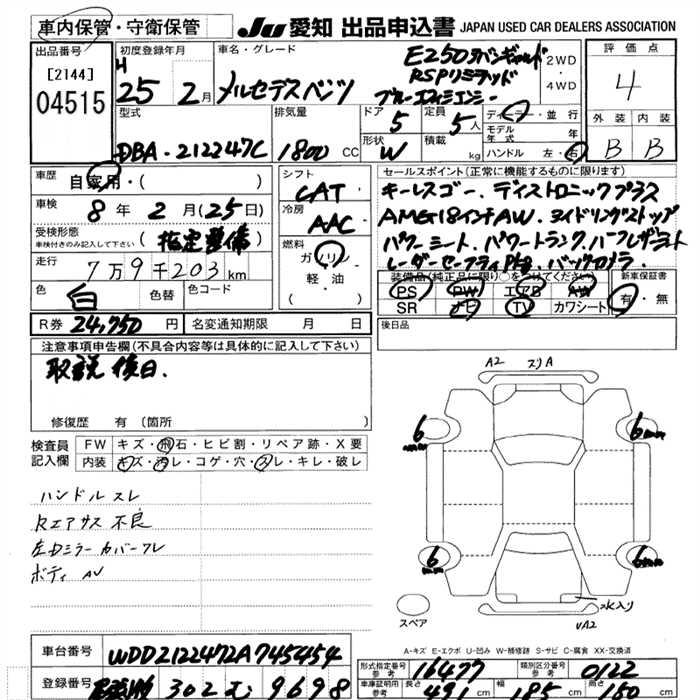 車内保管・守衛保管
JU 愛知 出品申込書 JAPAN USED CAR DEALERS ASSOCIATION
出品番号
[2144]
04515
初度登録年月
H
25 2月
車名・グレード
メルセデスベンツ
E250
RSPリミテッド
ブルーエフィシエンシー
2WD
・
4WD
評価点
4
外装 内装
B B
型式
DBA-212247C
排気量
1800 CC
ドア
5
形状
W
定員
5人
積載
kg
ディーラー・並行
モデル
年式
ハンドル 左・右
車歴
自家用・( )
車検
8年 2月(25日)
受検形態
車検付きのみ記入して下さい
(指定整備)
走行
7万9千203km
色
白
色替
色コード
シフト
CAT
冷房
AAC
燃料
ガソリン
軽・油
セールスポイント(正常に機能するものに限ります)
キーレスゴー、ディストロニックプラス
AMG18インチAW、
パワーシート、パワートランク、ハーフレザーシート
レーダーセーフティPkg、バックカメラ
装備品(純正品に限り○をつけてください)
PS PW エアB AW
SR ナビ TV カワシート
新車保証書
有・無
R券 24,750 円
名変通知期限 月 日
後日品
注意事項申告欄(不具合内容等は具体的に記入して下さい)
取説後日.
修復歴 有 (箇所
検査員
記入欄
FW キズ・飛石・ヒビ割・リペア跡・X要
内装 キズ・汚レ・コゲ・穴・スレ・キレ・破レ
ハンドルスレ
Rエアサス不良
左Dミラーカバーズレ
ボディ AU
A2 スリA
6 6
6 6
スペア
水入り
UA2
A-キズ E-エクボ U-凹み W-補修跡 S-サビ C-腐食 XX-交換済
車台番号
WDD2122472A745454
登録番号
302 む 9698
形式指定番号
参考
16477
類別区分番号
参考
0122
車庫証明用
参考
長さ 491 cm 幅 185 cm 高さ 150 cm